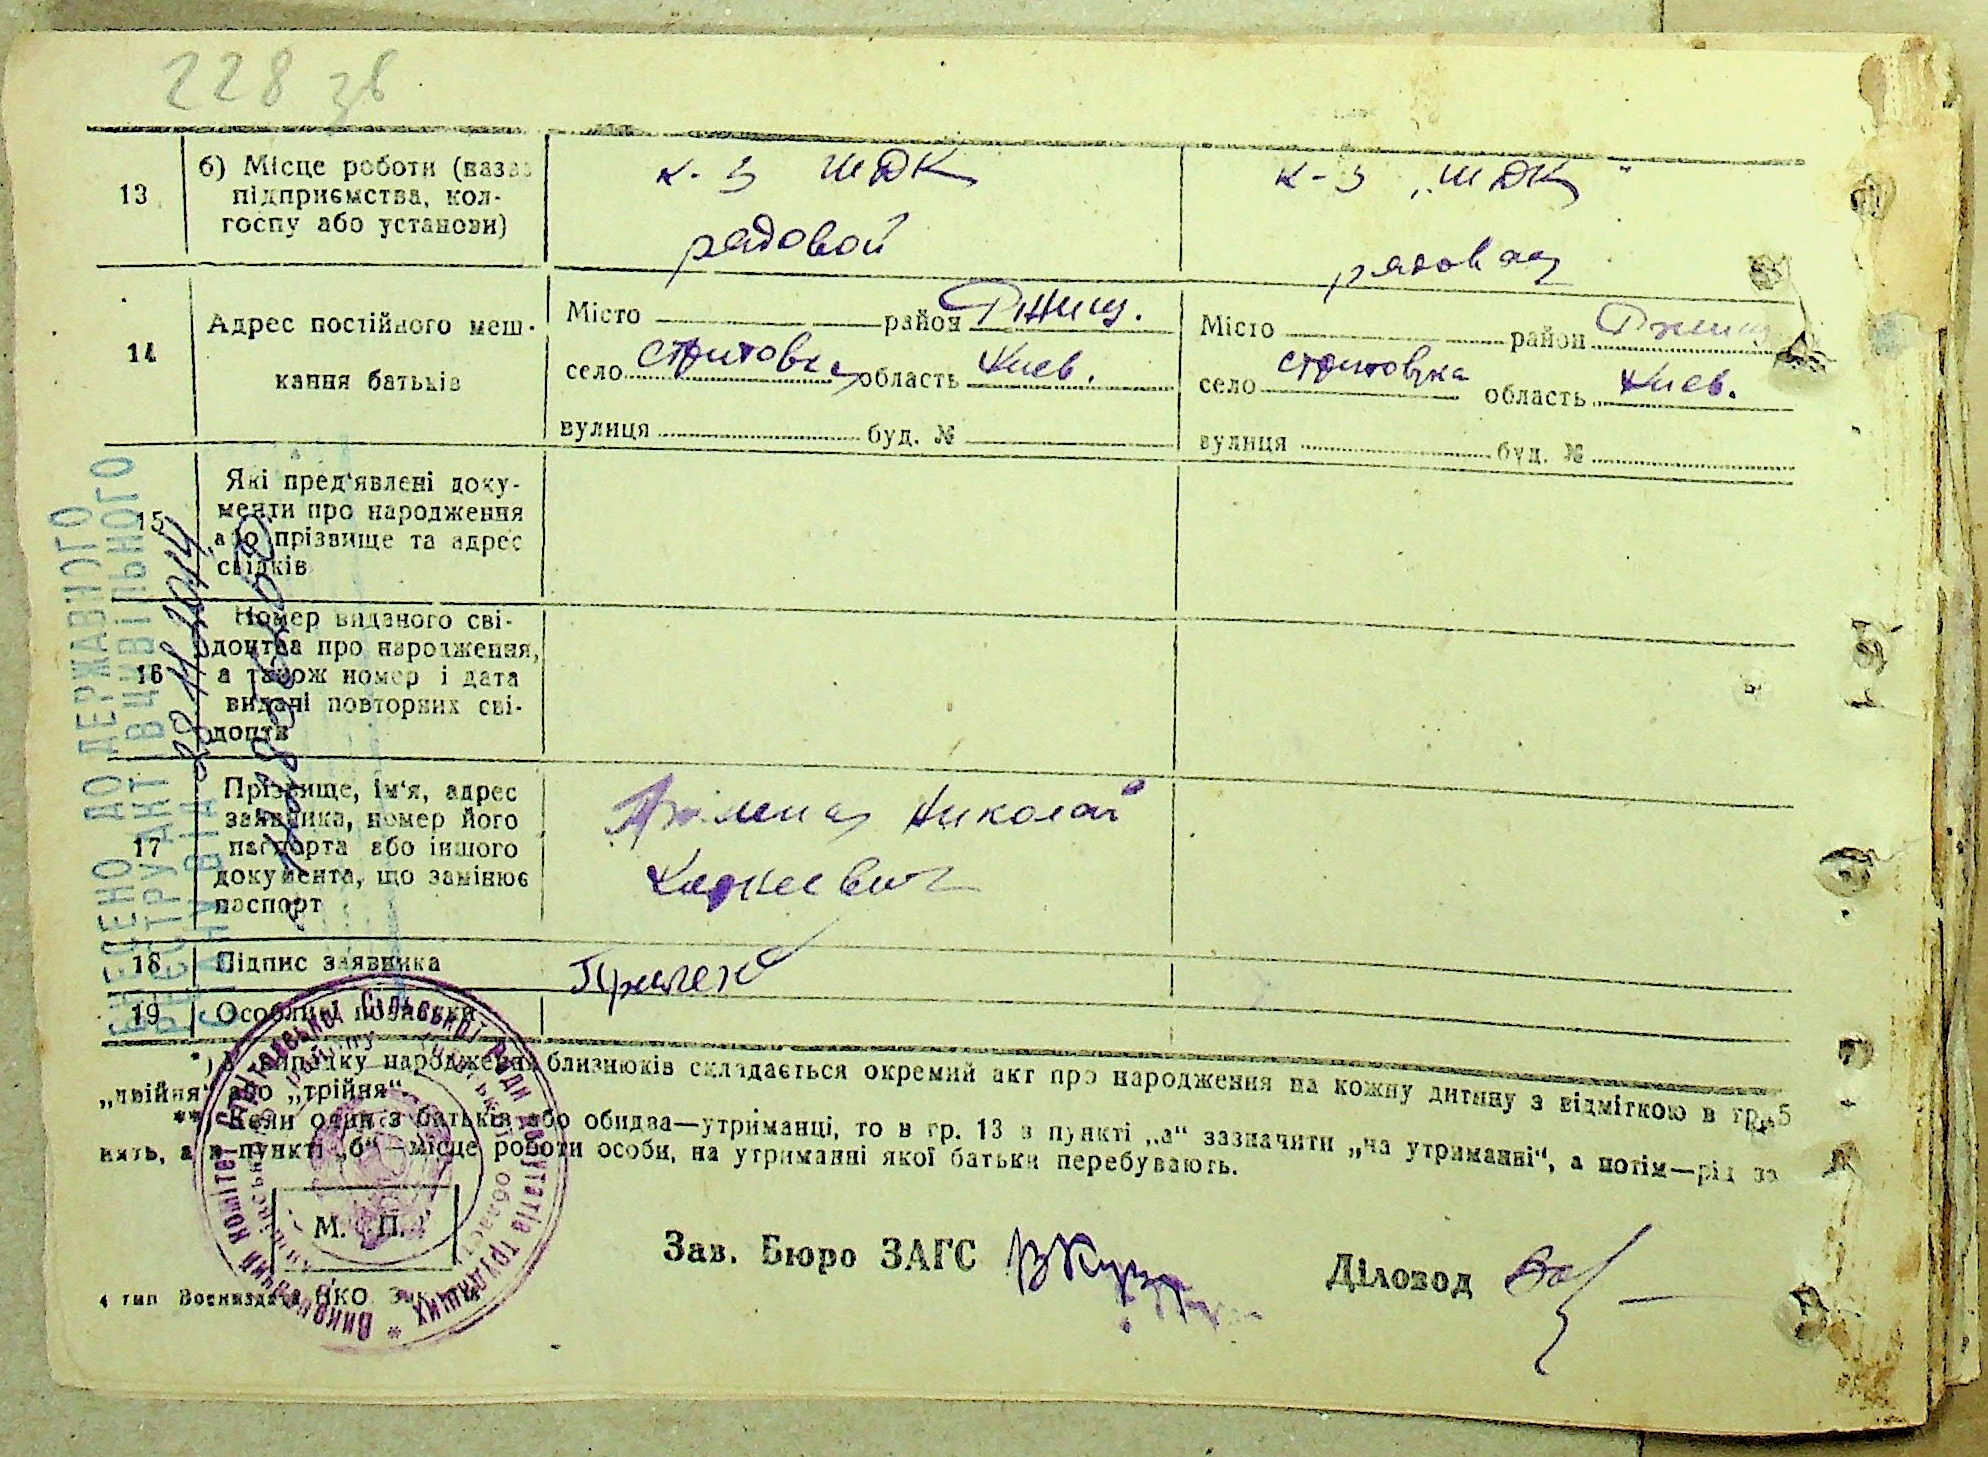 228 зв
13
б) Місце роботи (назва
підприємства, кол-
госпу або установи)
к-з ШДК
рядовой
к-з „ШДК"
рядовая
14
Адрес постійного меш-
кання батьків
Місто район Ржищ.
село Стритовка область Киев.
вулиця буд. №
Місто район Ржищ.
село Стритовка область Киев.
вулиця буд. №
15
Які пред'явлені доку-
менти про народження
або прізвище та адрес
свідків
16
Номер виданого сві-
доцтва про народження,
а також номер і дата
видачі повторних сві-
доцтв
17
Прізвище, ім'я, адрес
заявника, номер його
паспорта або іншого
документа, що замінює
паспорт
Николай
18
Підпис заявника
19
Особливі помітки
*) У випадку народження близнюків складається окремий акт про народження на кожну дитину з відміткою в гр. 5
„двійня" або „трійня"
**) Коли один з батьків або обидва—утриманці, то в гр. 13 в пункті „а" зазначити „на утриманні", а потім—рід за
нять, а в пункті „б"—місце роботи особи, на утриманні якої батьки перебувають.
М. П.
Зав. Бюро ЗАГС
Діловод
4 тип Воениздата НКО Зак.
ВНЕСЕНО ДО ДЕРЖАВНОГО
РЕЄСТРУ АКТІВ ЦИВІЛЬНОГО
СТАНУ ВІД
Виконавчий комітет Стритівської сільської ради депутатів трудящих *